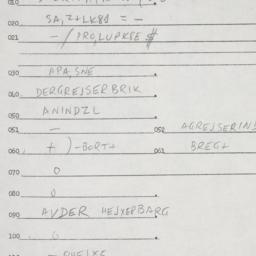 010
020 SA,Z+LK8J = -
021 -/PRO,LUPKSE $
030 APA,SNE
040 DERGREJSERBRIK
050 ANINDZL
051 - 052 AGREJSERIN
060 + )-BORT+ 061 BREG+
070 0
080 0
090 AVDER HEJXEPBARG
100 0